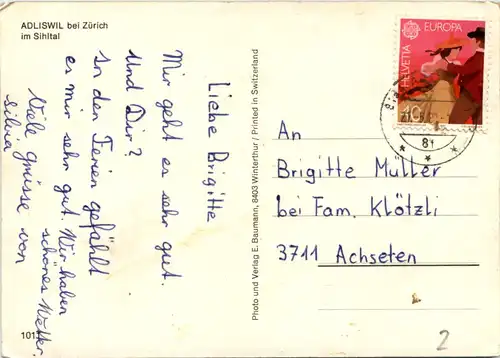 ADLISWIL bei Zürich
im Sihltal
Liebe Brigitte
Mir geht es sehr gut.
Und Dir?
In den Ferien gefählt
es mir sehr gut. Wir haben
schönes Wetter.
Viele Grüsse von
Silvia
Photo und Verlag E. Baumann, 8403 Winterthur / Printed in Switzerland
EUROPA
HELVETIA
40
81
An
Brigitte Müller
bei Fam. Klötzli
3711 Achseten
2